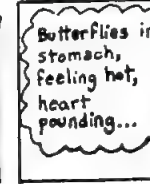 Butterflies in
stomach,
feeling hot,
heart
pounding...